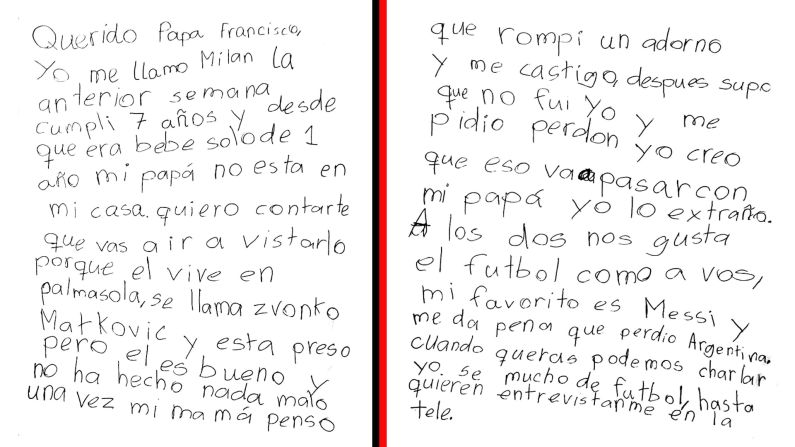 Querido Papa Francisco,
Yo me llamo Milan la
anterior semana
cumpli 7 años y desde
que era bebe solo de 1
año mi papá no esta en
mi casa. quiero contarte
que vas a ir a vistarlo
porque el vive en
palmasola, se llama zvonko
Matkovic y esta preso
pero el es bueno y
no ha hecho nada malo
una vez mi mamá penso
que rompi un adorno
y me castigo, despues supo
que no fui yo y me
pidio perdon yo creo
que eso va a pasar con
mi papá yo lo extraño.
A los dos nos gusta
el futbol como a vos,
mi favorito es Messi y
me da pena que perdio Argentina.
cuando queras podemos charlar
yo se mucho de futbol, hasta
quieren entrevistarme en la
tele.